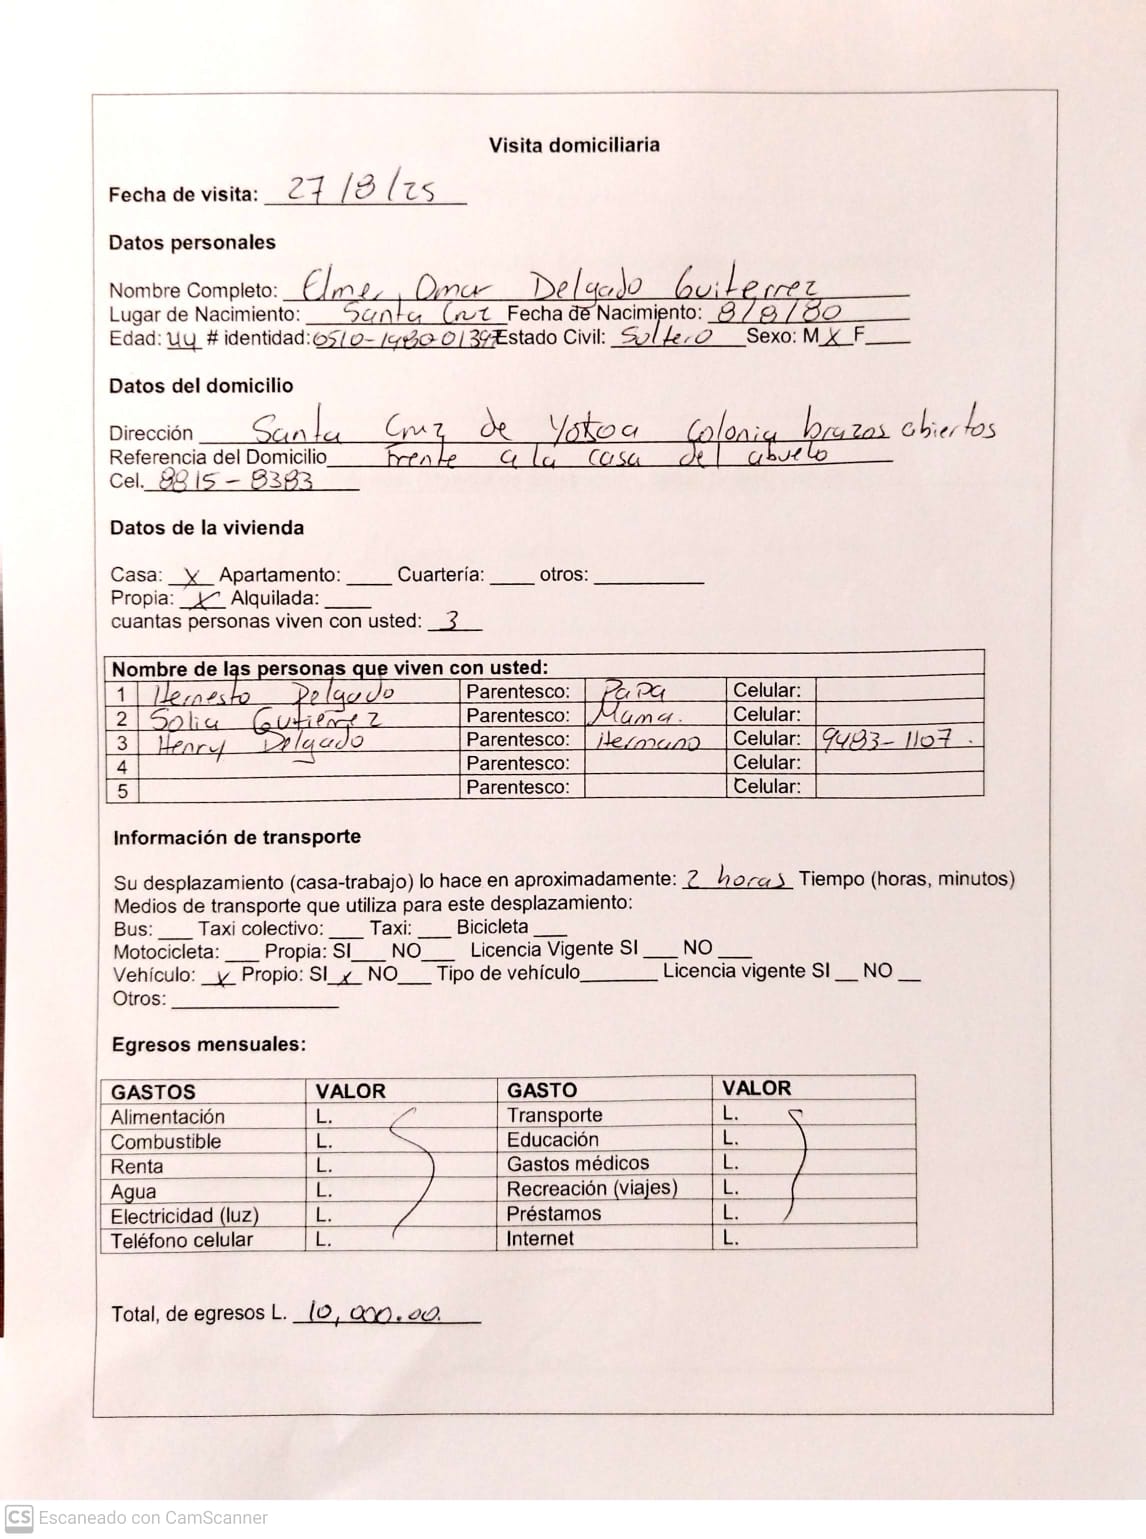 Visita domiciliaria
Fecha de visita: 27/8/25
Datos personales
Nombre Completo: Elmer Omar Delgado Guiterrez
Lugar de Nacimiento: Santa Cruz Fecha de Nacimiento: 8/8/80
Edad: 44 # identidad: 0510-1980-01397 Estado Civil: Soltero Sexo: M X F
Datos del domicilio
Dirección Santa Cruz de Yojoa Colonia brazos abiertos
Referencia del Domicilio Frente a la casa del abuelo
Cel. 8815-8383
Datos de la vivienda
Casa: X Apartamento: ____ Cuartería: ____ otros: ____
Propia: X Alquilada: ____
cuantas personas viven con usted: 3
Nombre de las personas que viven con usted:
1 Hernesto Delgado Parentesco: Papa Celular:
2 Gutierrez Parentesco: Mama. Celular:
3 Henry Delgado Parentesco: Hermano Celular: 9483-1107.
4 Parentesco: Celular:
5 Parentesco: Celular:
Información de transporte
Su desplazamiento (casa-trabajo) lo hace en aproximadamente: 2 horas Tiempo (horas, minutos)
Medios de transporte que utiliza para este desplazamiento:
Bus: ___ Taxi colectivo: ___ Taxi: ___ Bicicleta ___
Motocicleta: ___ Propia: SI___ NO___ Licencia Vigente SI ___ NO ___
Vehículo: X Propio: SI X NO___ Tipo de vehículo_______ Licencia vigente SI __ NO __
Otros: _______________
Egresos mensuales:
GASTOS VALOR GASTO VALOR
Alimentación L. Transporte L.
Combustible L. Educación L.
Renta L. Gastos médicos L.
Agua L. Recreación (viajes) L.
Electricidad (luz) L. Préstamos L.
Teléfono celular L. Internet L.
Total, de egresos L. 10,000.00.
CS Escaneado con CamScanner